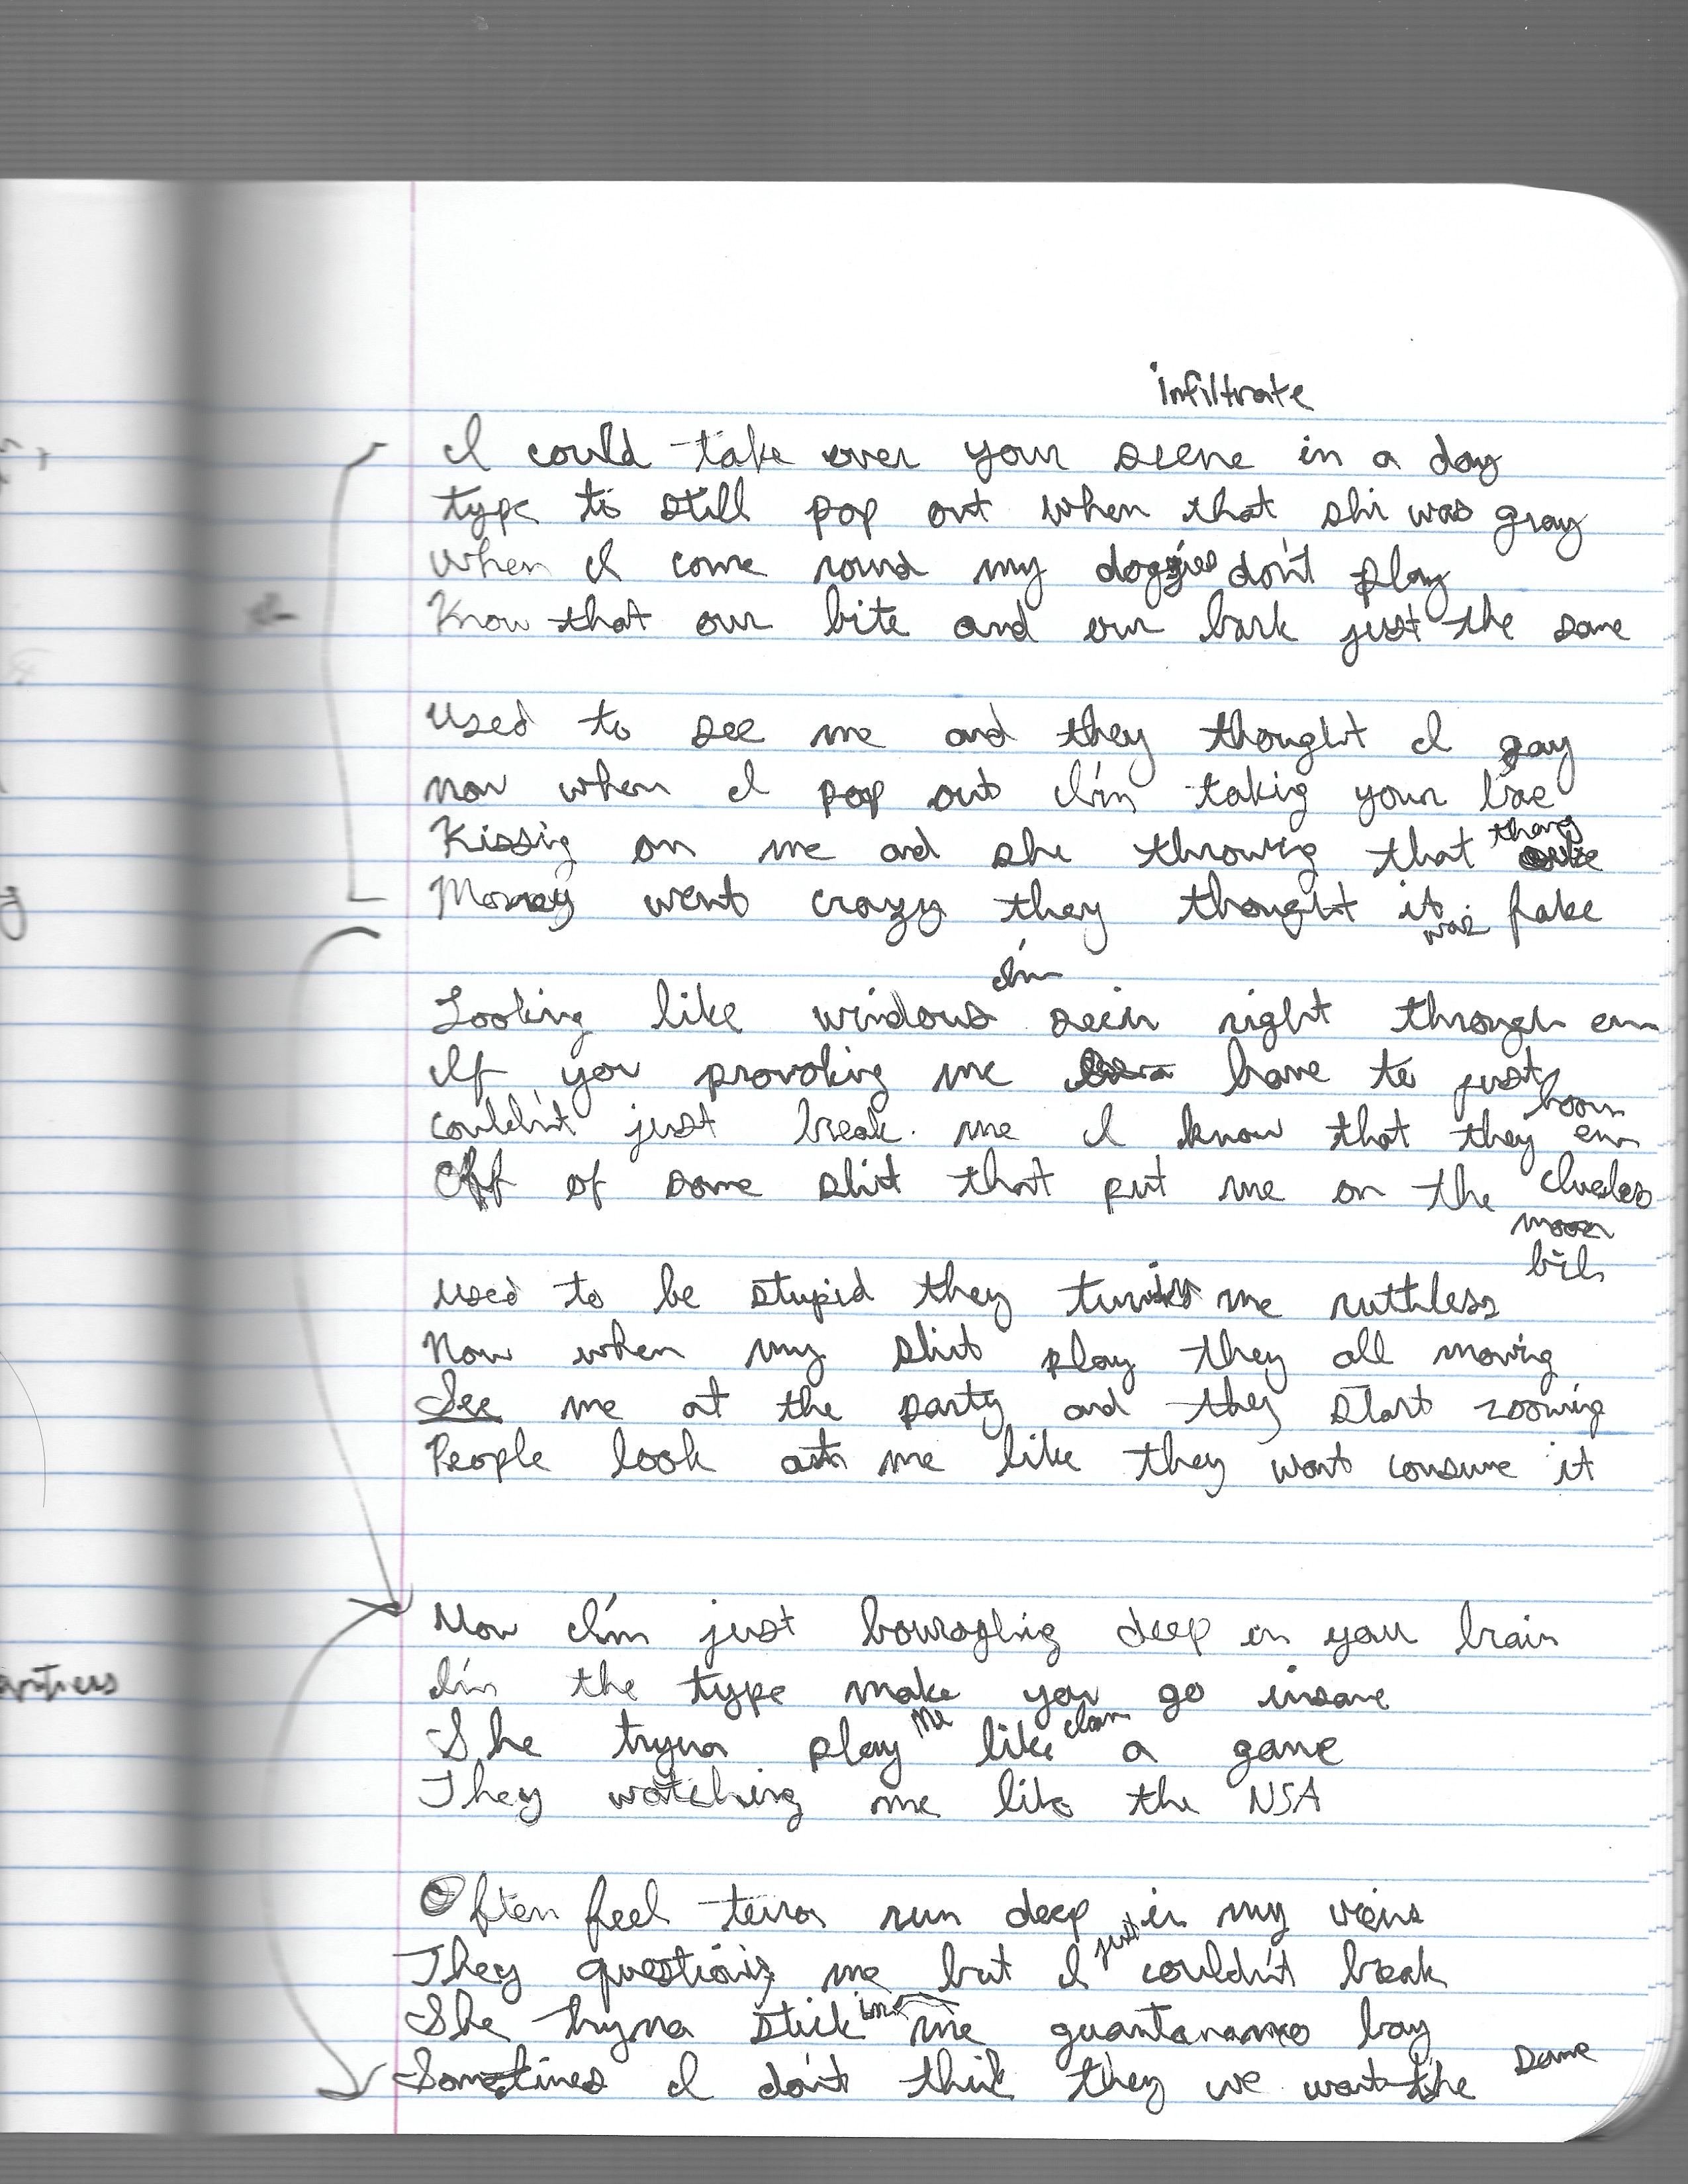 infiltrate
I could take over your scene in a day
type to still pop out when that shi was gray
When I come round my doggies don't play
Know that our bite and our bark just the same
Used to see me and they thought I gay
now when I pop out I'm taking your bae
Kissig on me and she throwing that thang
Money went crazy they thought it was fake
Looking like windows I'm seein right through em
If you provoking me have to just boom
couldn't just break me I know that they em
Off of some shit that put me on the
moon
Used to be stupid they turnin me ruthless
Now when my shit play they all moving
See me at the party and they start zooming
People look at me like they want consume it
Now I'm just bouroghing deep in your brain
I'm the type make you go insane
She tryna play me like I am a game
They watching me like the NSA
Often feel terror run deep in my veins
They questionig me but I just couldn't break
She tryna stick me in guantanamo bay
Sometimes I don't think they we want the same